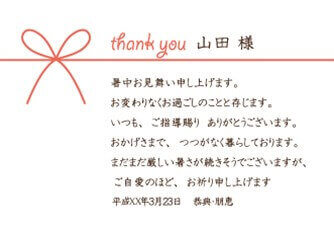 thank you 山田 様
暑中お見舞い申し上げます。
お変わりなくお過ごしのことと存じます。
いつも、ご指導賜り ありがとうございます。
おかげさまで、つつがなく暮らしております。
まだまだ厳しい暑さが続きそうでございますが、
ご自愛のほど、お祈り申し上げます
平成XX年3月23日 恭典・朋恵